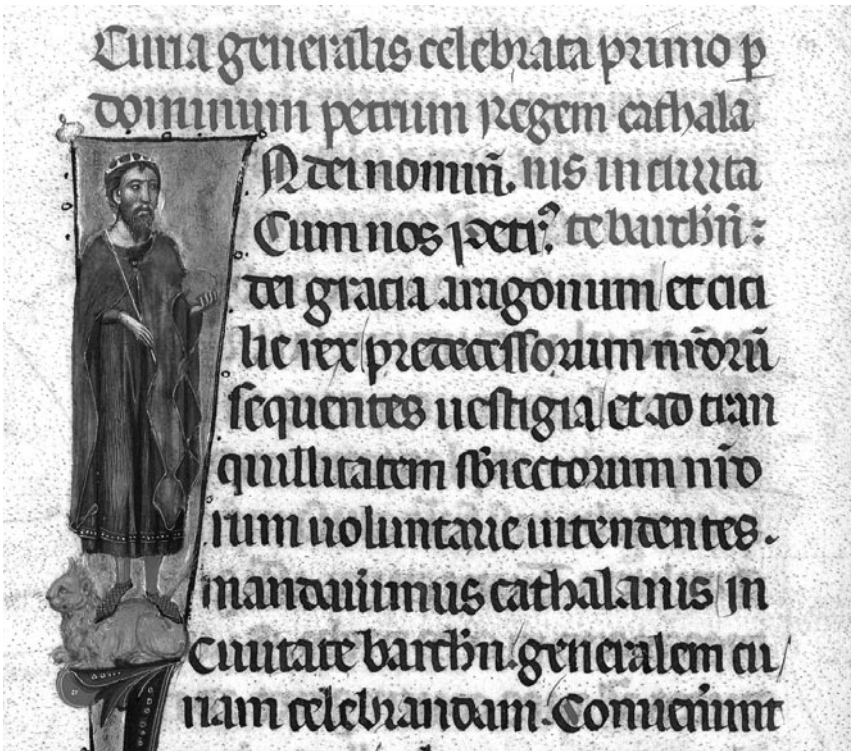 Curia generalis celebrata primo ꝑ
dominum petrum Regem cathala
N dei nomiñ. nis in ciuita
Cum nos petrꝰ. te barchñ:
dei gracia aragonum / et cici
lie rex / predecessorum nr̄orū
sequentes uestigia / et ad tran
quillitatem sb̄iectorum nr̄o
rum uoluntarie intendentes.
mandauimus cathalanis / in
Ciuitate barchñ. generalem cu/
riam celebrandam. Conuen̄unt